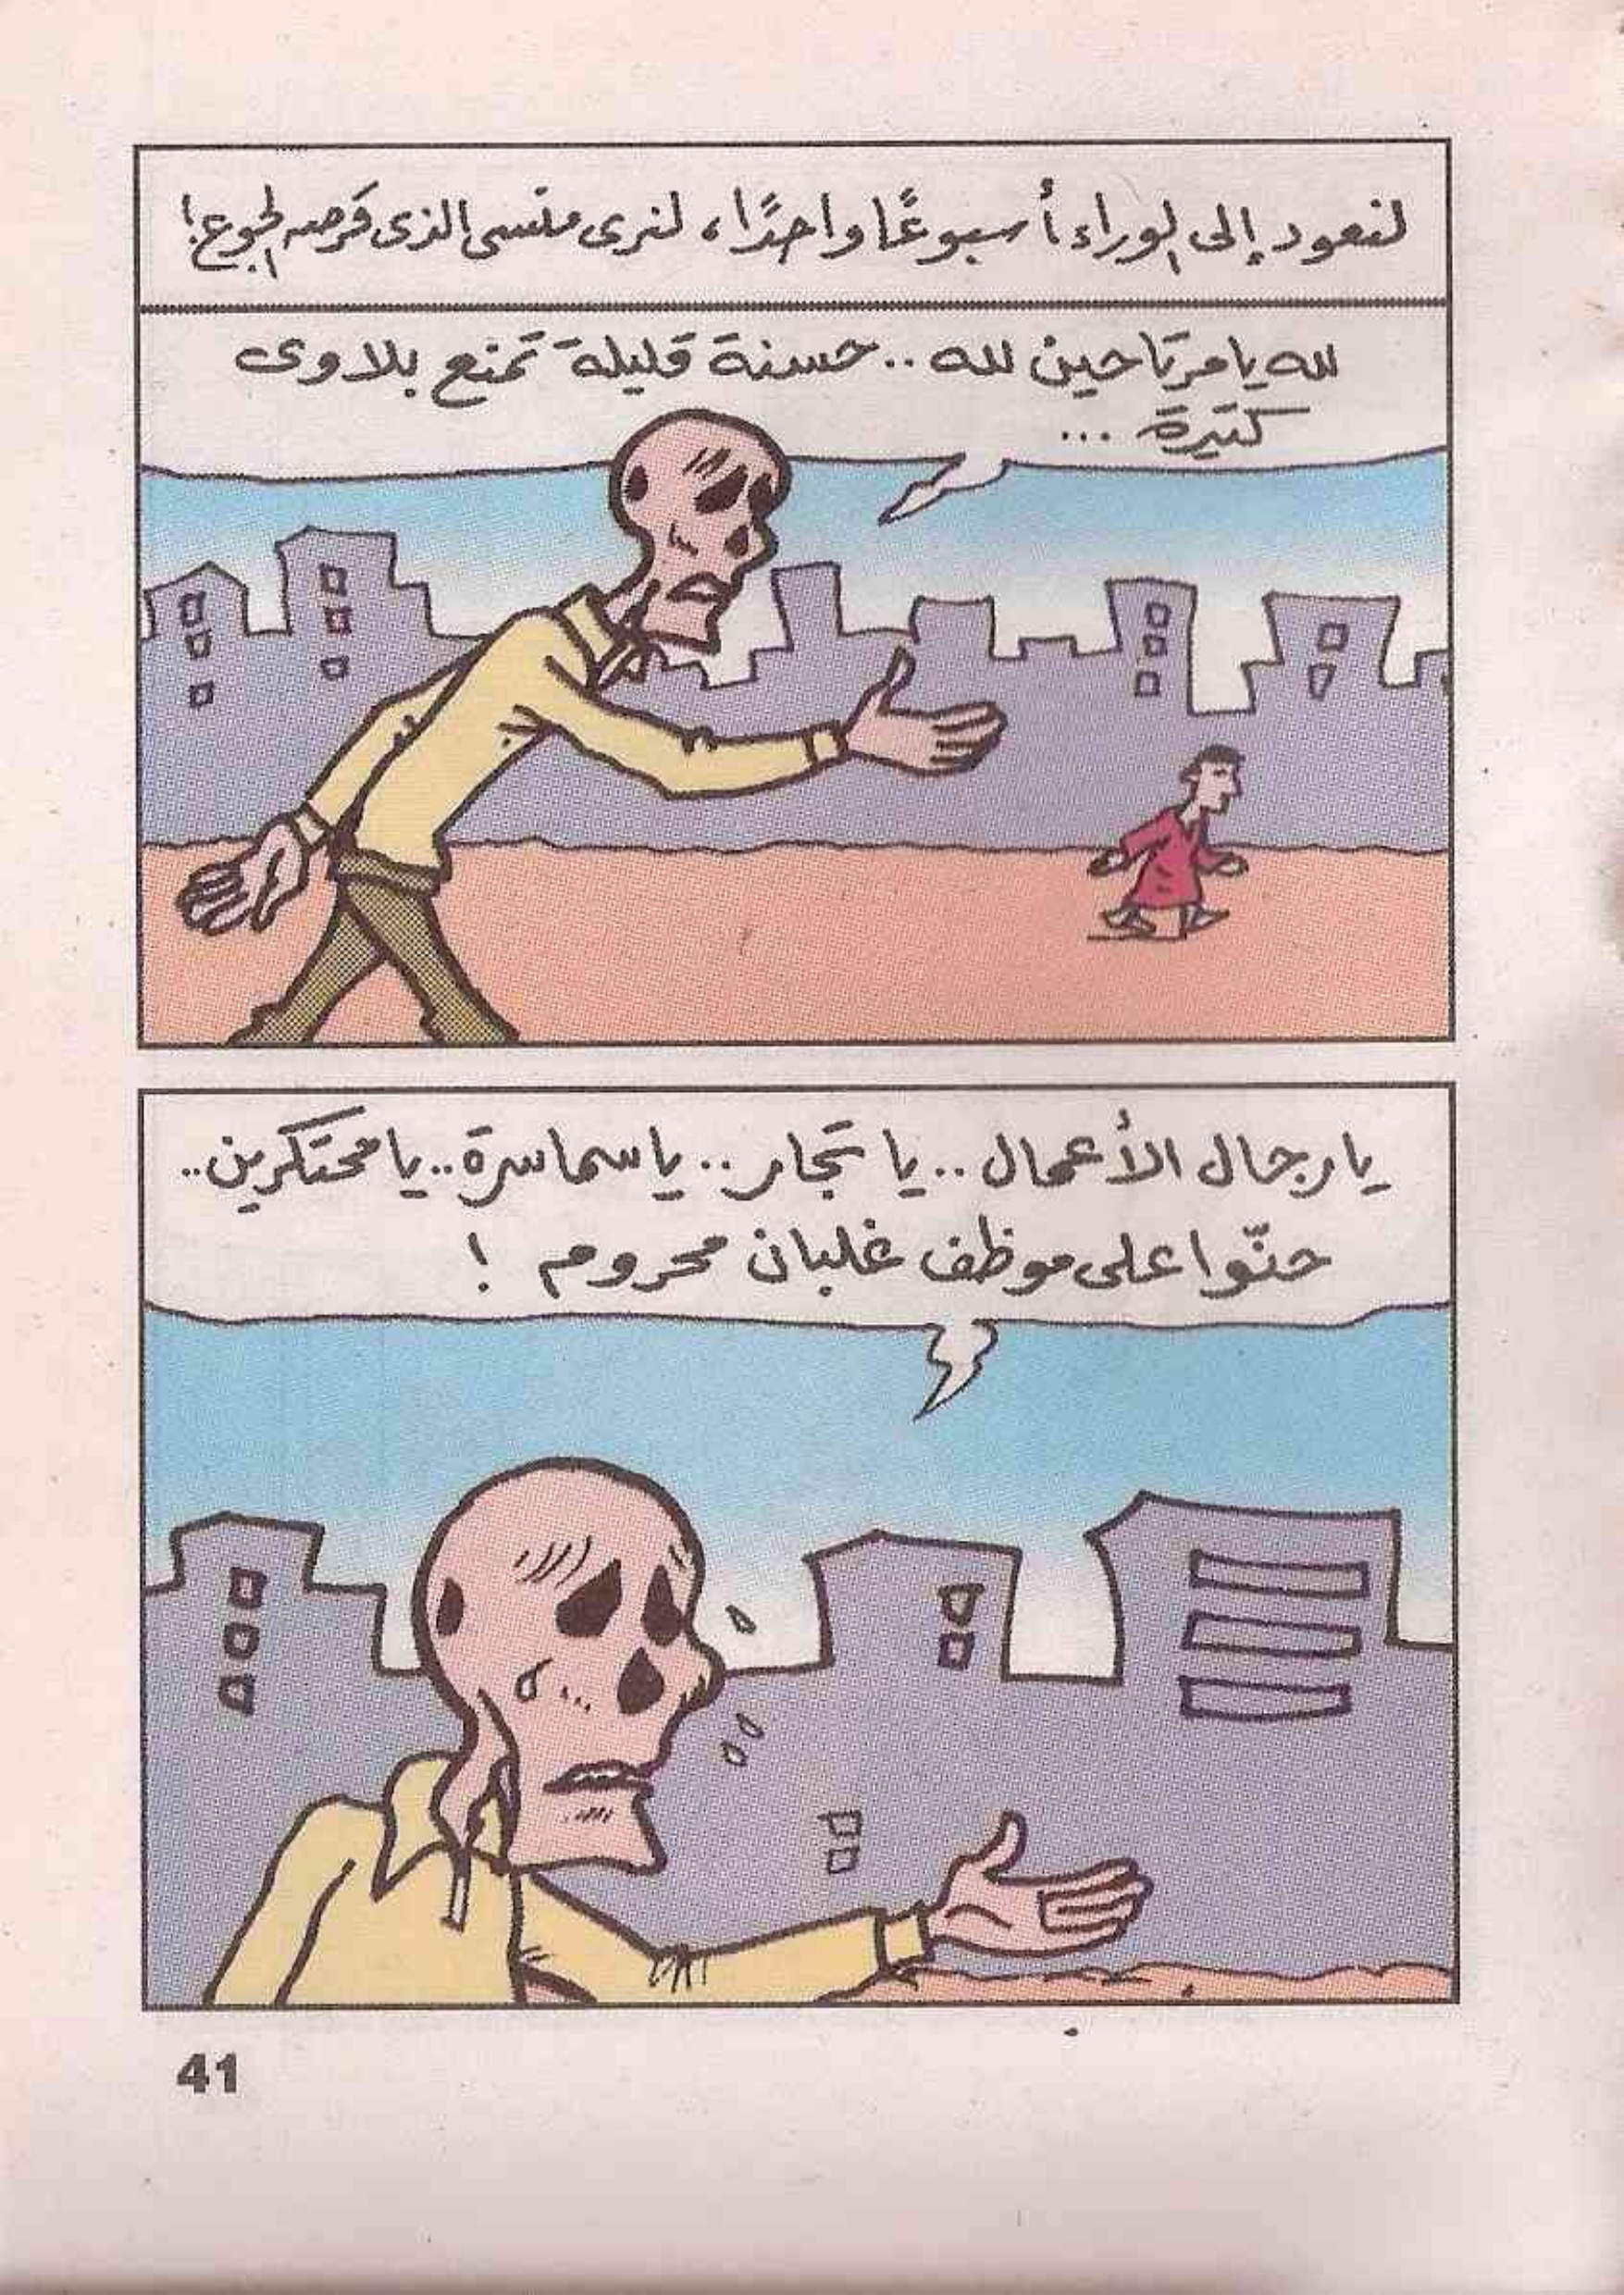 لنعود إلى الوراء أسبوعًا واحدًا، لنرى منسى الذى قرصه الجوع!
لله يا مرتاحين لله .. حسنة قليلة تمنع بلاوى
كتيرة ...
يا رجال الأعمال .. يا تجار .. يا سماسرة .. يا محتكرين ..
حنّوا على موظف غلبان محروم !
41